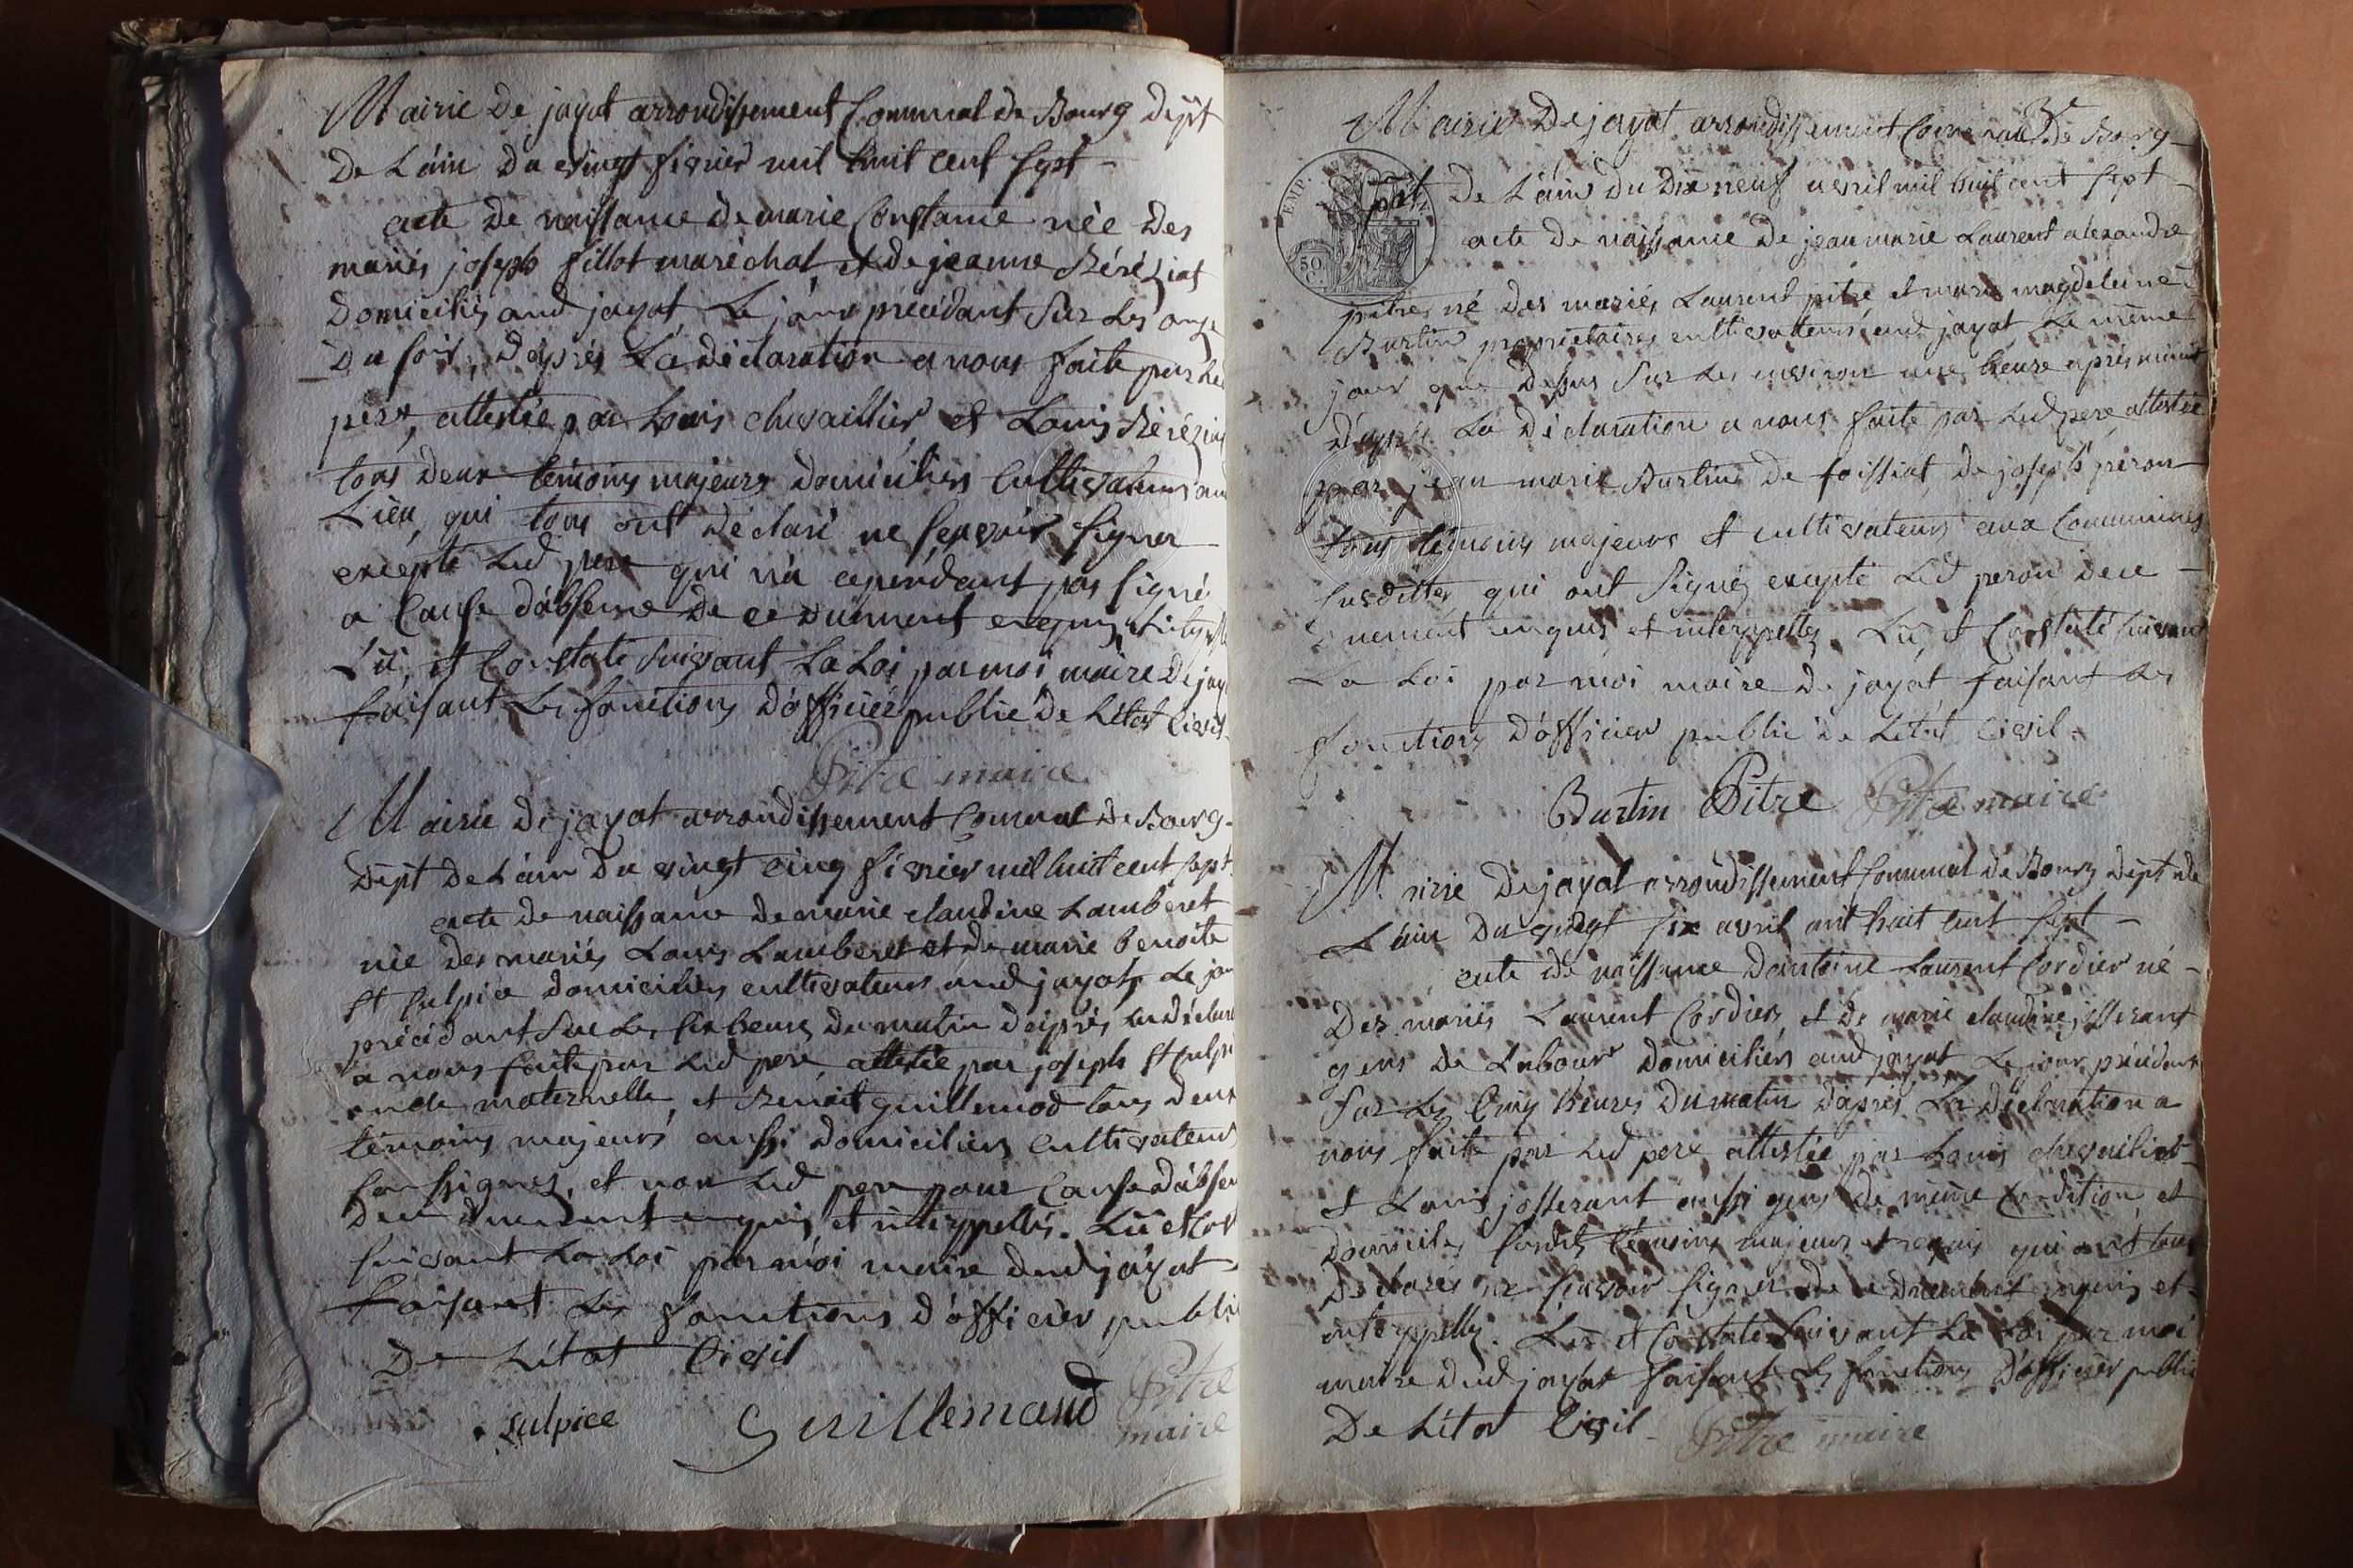 Mairie De jayat arrondissement Communal de Bourg dept
De L'ain du vingt fevrier mil huit cent sept -
acte de naissance de marie Constance née des
mariés joseph fillot maréchal et de jeanne Béréziat
Domiciliés aud jayat Le jour précédant Sur Les onze
Du soir, d'après La déclaration a nous faite par Led
père, attestée par Louis chevaillier et Louis Béréziat
tous deux témoins majeurs domiciliés Cultivateurs aud
Lieu, qui tous ont déclaré ne scavoir signer
excepté Led père qui n'a cependant pas signé
a Cause d'absence de ce duement enquis
Lû, et Constaté suivant La Loi par moi maire De jayat
faisant Les fonctions d'officier public de L'état Civil
Pitre maire
Mairie De jayat arrondissement Communal De Bourg-
Dept De L'ain Du vingt cinq fevrier mil huit cent sept
acte de naissance de marie claudine Lamberet
née des mariés Louis Lamberet et de marie benoite
St Sulpice domiciliés cultivateurs aud jayat, Le jour
précédant Sur Les six heures du matin d'après La déclara
a nous faite par Led pere, attestée par joseph St Sulpi
oncle maternelle, et Benoit guillemod tous deux
témoins majeurs aussi domiciliés cultivateurs
soussignés, et non Led pere pour Cause d'absen
de ce duement enquis et interppellés. Lû et Cons
suivant La Loi par moi maire dud jayat -
faisant Les fonctions d'officier public
De L'état Civil
Sulpice Guillemaud Pitre
maire
3e
Mairie De jayat arrondissement Communal De Bourg-
EMP.
50 C.
Dept De L'ain du Dix neuf avril mil huit cent sept -
acte de naissance de jean marie Laurent alexandre
pitre né des mariés Laurent pitre et marie magdeleine
Burtin propriétaires cultivateurs aud jayat Le même
jour que dessus sur Les environ une heure après minuit
D'après La déclaration a nous faite par Led pere attestée
par jean marie Burtin de foissiat, de joseph péron
tous témoins majeurs et cultivateurs aux Communes
susdittes qui ont signés excepté Led peron de ce -
duement enquis et interppellés. Lû, et Constaté suivant
La Loi par moi maire de jayat faisant Les
fonctions d'officier public de L'état Civil.
Burtin Pitre Pitre maire
Mairie De jayat arrondissement Communal de Bourg dept de
L'ain Du vingt six avril mil huit cent sept -
acte de naissance d'antoine Laurent Cordier né -
Des mariés Laurent Cordier, et de marie claudine josserant
gens de Labour domiciliés aud jayat Le jour précédant
sur Les Cinq heures du matin d'après La Déclaration a
nous faite par Led pere attestée par Louis chevaillier
et Louis josserant aussi gens de même Condition et
domicile, susdits témoins majeurs et requis qui ont tous
Declarés ne scavoir signer de ce duement enquis et
interppellés. Lû et Constaté suivant La Loi par moi
maire dud jayat faisant Les fonctions d'officier public
De L'état Civil. Pitre maire